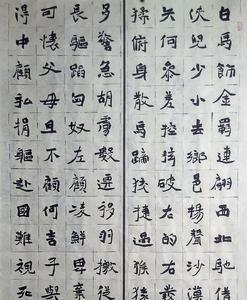 白馬飾金羈連翩西北馳借
俠兒少小去鄉邑揚聲沙漠
矢何參差控弦破左的右發
猱俯身散馬蹄狡捷過猴猿
多警急胡虜數遷移羽檄從
長驅蹈匈奴左顧凌鮮卑棄
可懷父母且不顧何言子與
得中顧私捐軀赴國難視死